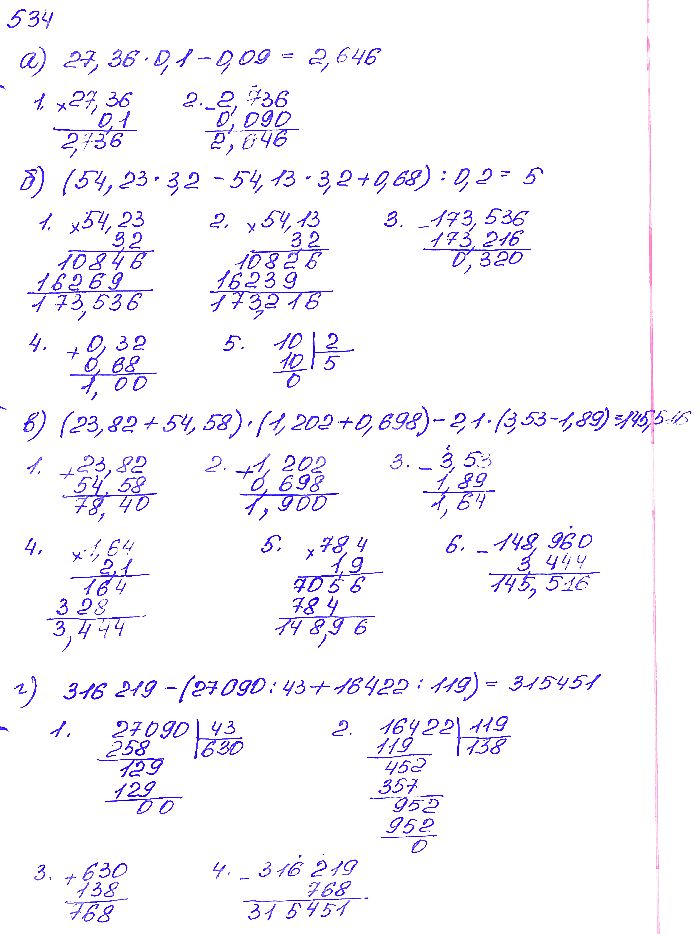 534
а) 27,36·0,1-0,09 = 2,646
1. ×27,36 2. -2,736
0,1 0,090
2,736 2,646
б) (54,23·3,2-54,13·3,2+0,68):0,2 = 5
1. ×54,23 2. ×54,13 3. -173,536
32 32 173,216
10846 10826 0,320
16269 16239
173,536 173,216
4. +0,32 5. 10|2
0,68 10|5
1,00 0
в) (23,82+54,58)·(1,202+0,698)-2,1·(3,53-1,89)=145,516
1. +23,82 2. +1,202 3. -3,53
54,58 0,698 1,89
78,40 1,900 1,64
4. ×1,64 5. ×78,4 6. -148,960
2,1 1,9 3,444
164 7056 145,516
328 784
3,444 148,96
г) 316 219-(27090:43+16422:119) = 315451
1. 27090|43 2. 16422|119
258 630 119 138
129 452
129 357
00 952
952
0
3. +630 4. -316 219
138 768
768 315451